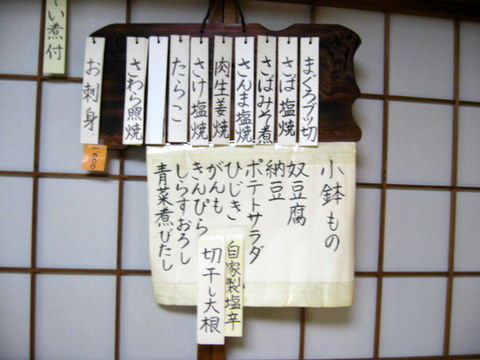 まぐろブツ切
さば塩焼
さばみそ煮
さんま塩焼
肉生姜焼
さけ塩焼
たらこ
さわら照焼
お刺身
1000
い煮付
小鉢もの
奴豆腐
納豆
ポテトサラダ
ひじき
がんも
きんぴら
しらすおろし
青菜煮びたし
自家製塩辛
切干し大根